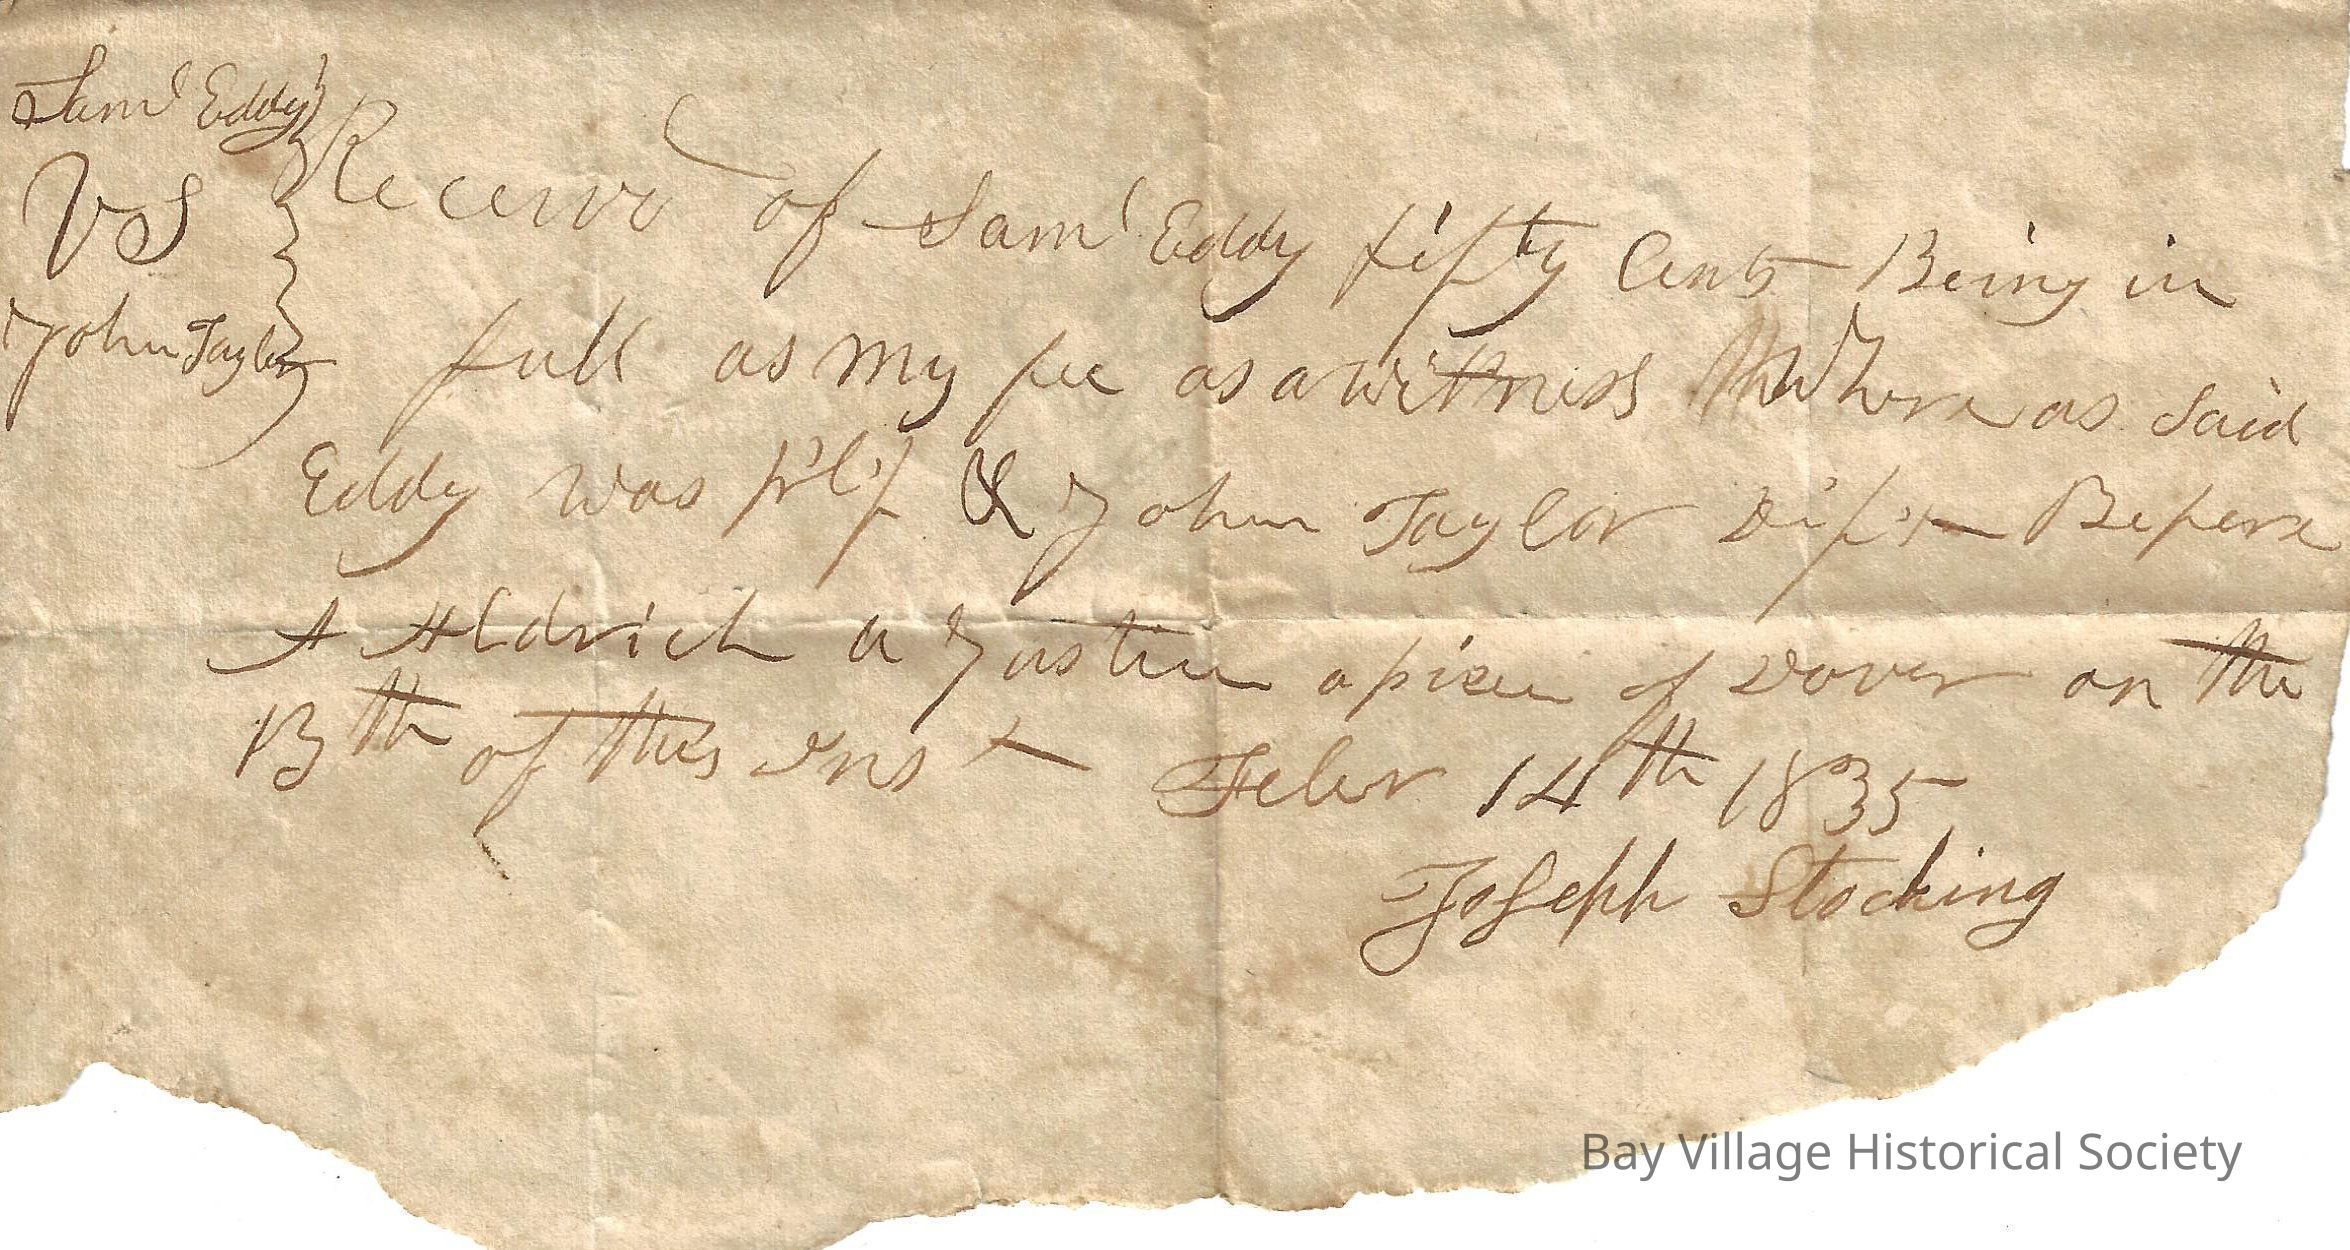 Saml Eddy
VS
John Taylor
Receivd of Saml Eddy fifty Cents Being in
full as my fee as a witness Whereas Said
Eddy was pl'f & John Taylor Dif't Before
A Aldrich a Justice apiece of Dover on the
13th of this Inst Feber 14th 1835
Joseph Stocking
Bay Village Historical Society